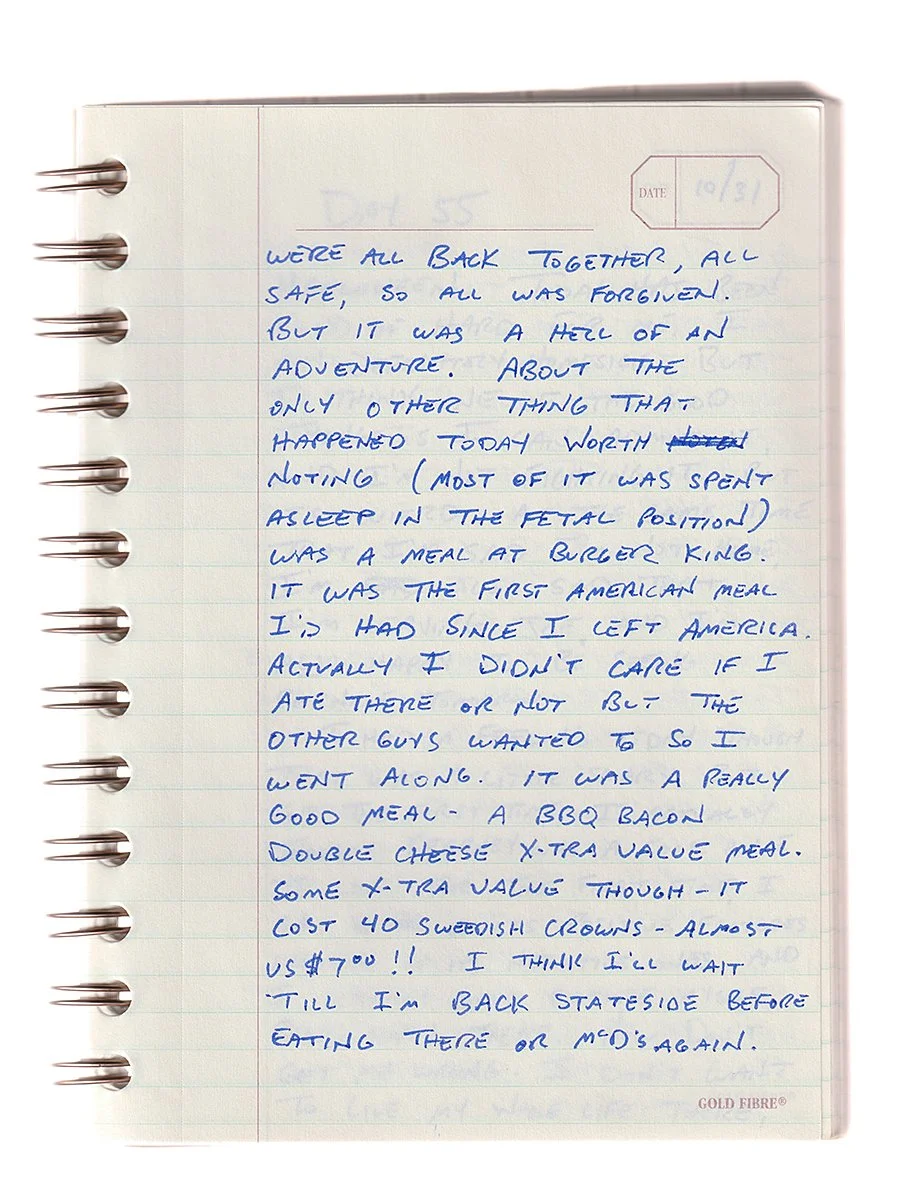 DAY 55
DATE 10/31
WE'RE ALL BACK TOGETHER, ALL
SAFE, SO ALL WAS FORGIVEN.
BUT IT WAS A HELL OF AN
ADVENTURE. ABOUT THE
ONLY OTHER THING THAT
HAPPENED TODAY WORTH
NOTING (MOST OF IT WAS SPENT
ASLEEP IN THE FETAL POSITION)
WAS A MEAL AT BURGER KING.
IT WAS THE FIRST AMERICAN MEAL
I'D HAD SINCE I LEFT AMERICA.
ACTUALLY I DIDN'T CARE IF I
ATE THERE OR NOT BUT THE
OTHER GUYS WANTED TO SO I
WENT ALONG. IT WAS A REALLY
GOOD MEAL - A BBQ BACON
DOUBLE CHEESE X-TRA VALUE MEAL.
SOME X-TRA VALUE THOUGH - IT
COST 40 SWEDISH CROWNS - ALMOST
US $7.00 !! I THINK I'LL WAIT
'TILL I'M BACK STATESIDE BEFORE
EATING THERE OR McD'S AGAIN.
GOLD FIBRE®